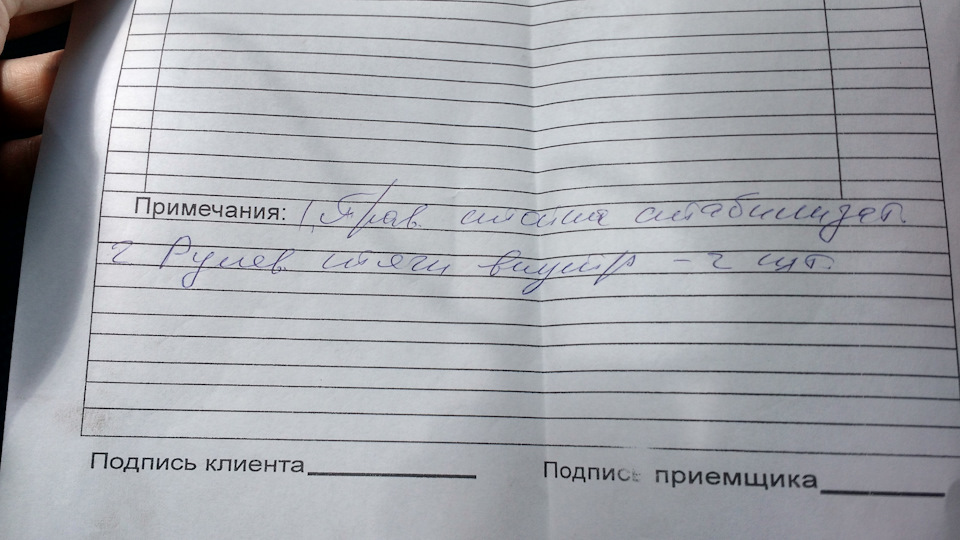 Примечания: 1, Прав. стойка стабилизат.
2 Рулев. тяги внутр - 2 шт.
Подпись клиента
Подпись приемщика